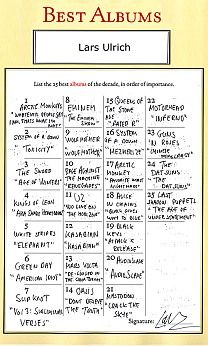 BEST ALBUMS
Lars Ulrich
List the 25 best albums of the decade, in order of importance.
1
ARCTIC MONKEYS
"WHATEVER PEOPLE SAY
I AM, THAT'S WHAT I'M
NOT"
2
SYSTEM OF A DOWN
"TOXICITY"
3
THE SWORD
"AGE OF WINTERS"
4
KINGS OF LEON
"AHA SHAKE HEARTBREAK"
5
WHITE STRIPES
"ELEPHANT"
6
GREEN DAY
"AMERICAN IDIOT"
7
SLIPKNOT
"VOL 3: SUBLIMINAL
VERSES"
8
EMINEM
"THE EMINEM
SHOW"
9
WOLFMOTHER
"WOLFMOTHER"
10
RAGE AGAINST
THE MACHINE
"RENEGADES"
11
U2
"NO LINE ON
THE HORIZON"
12
KASABIAN
"KASABIAN"
13
MARS VOLTA
"DE-LOUSED IN
THE COMATORIUM"
14 OASIS
"DON'T BELIEVE
THE TRUTH"
15 QUEENS OF
THE STONE
AGE
"RATED R"
16 SYSTEM
OF A DOWN
"MEZMERIZE"
17 ARCTIC
MONKEYS
"FAVOURITE WORST
NIGHTMARE"
18 ALICE
IN CHAINS
"BLACK GIVES
WAY TO BLUE"
19 BLACK
KEYS
"ATTACK &
RELEASE"
20 AUDIOSLAVE
"AUDIOSLAVE"
21
MASTODON
"CRACK THE
SKYE"
22
MOTORHEAD
"INFERNO"
23 GUNS
N' ROSES
"CHINESE
DEMOCRACY"
24 THE
DATSUNS
"THE
DATSUNS"
25 LAST
SHADOW PUPPETS
"THE AGE OF
UNDERSTATEMENT"
Signature: